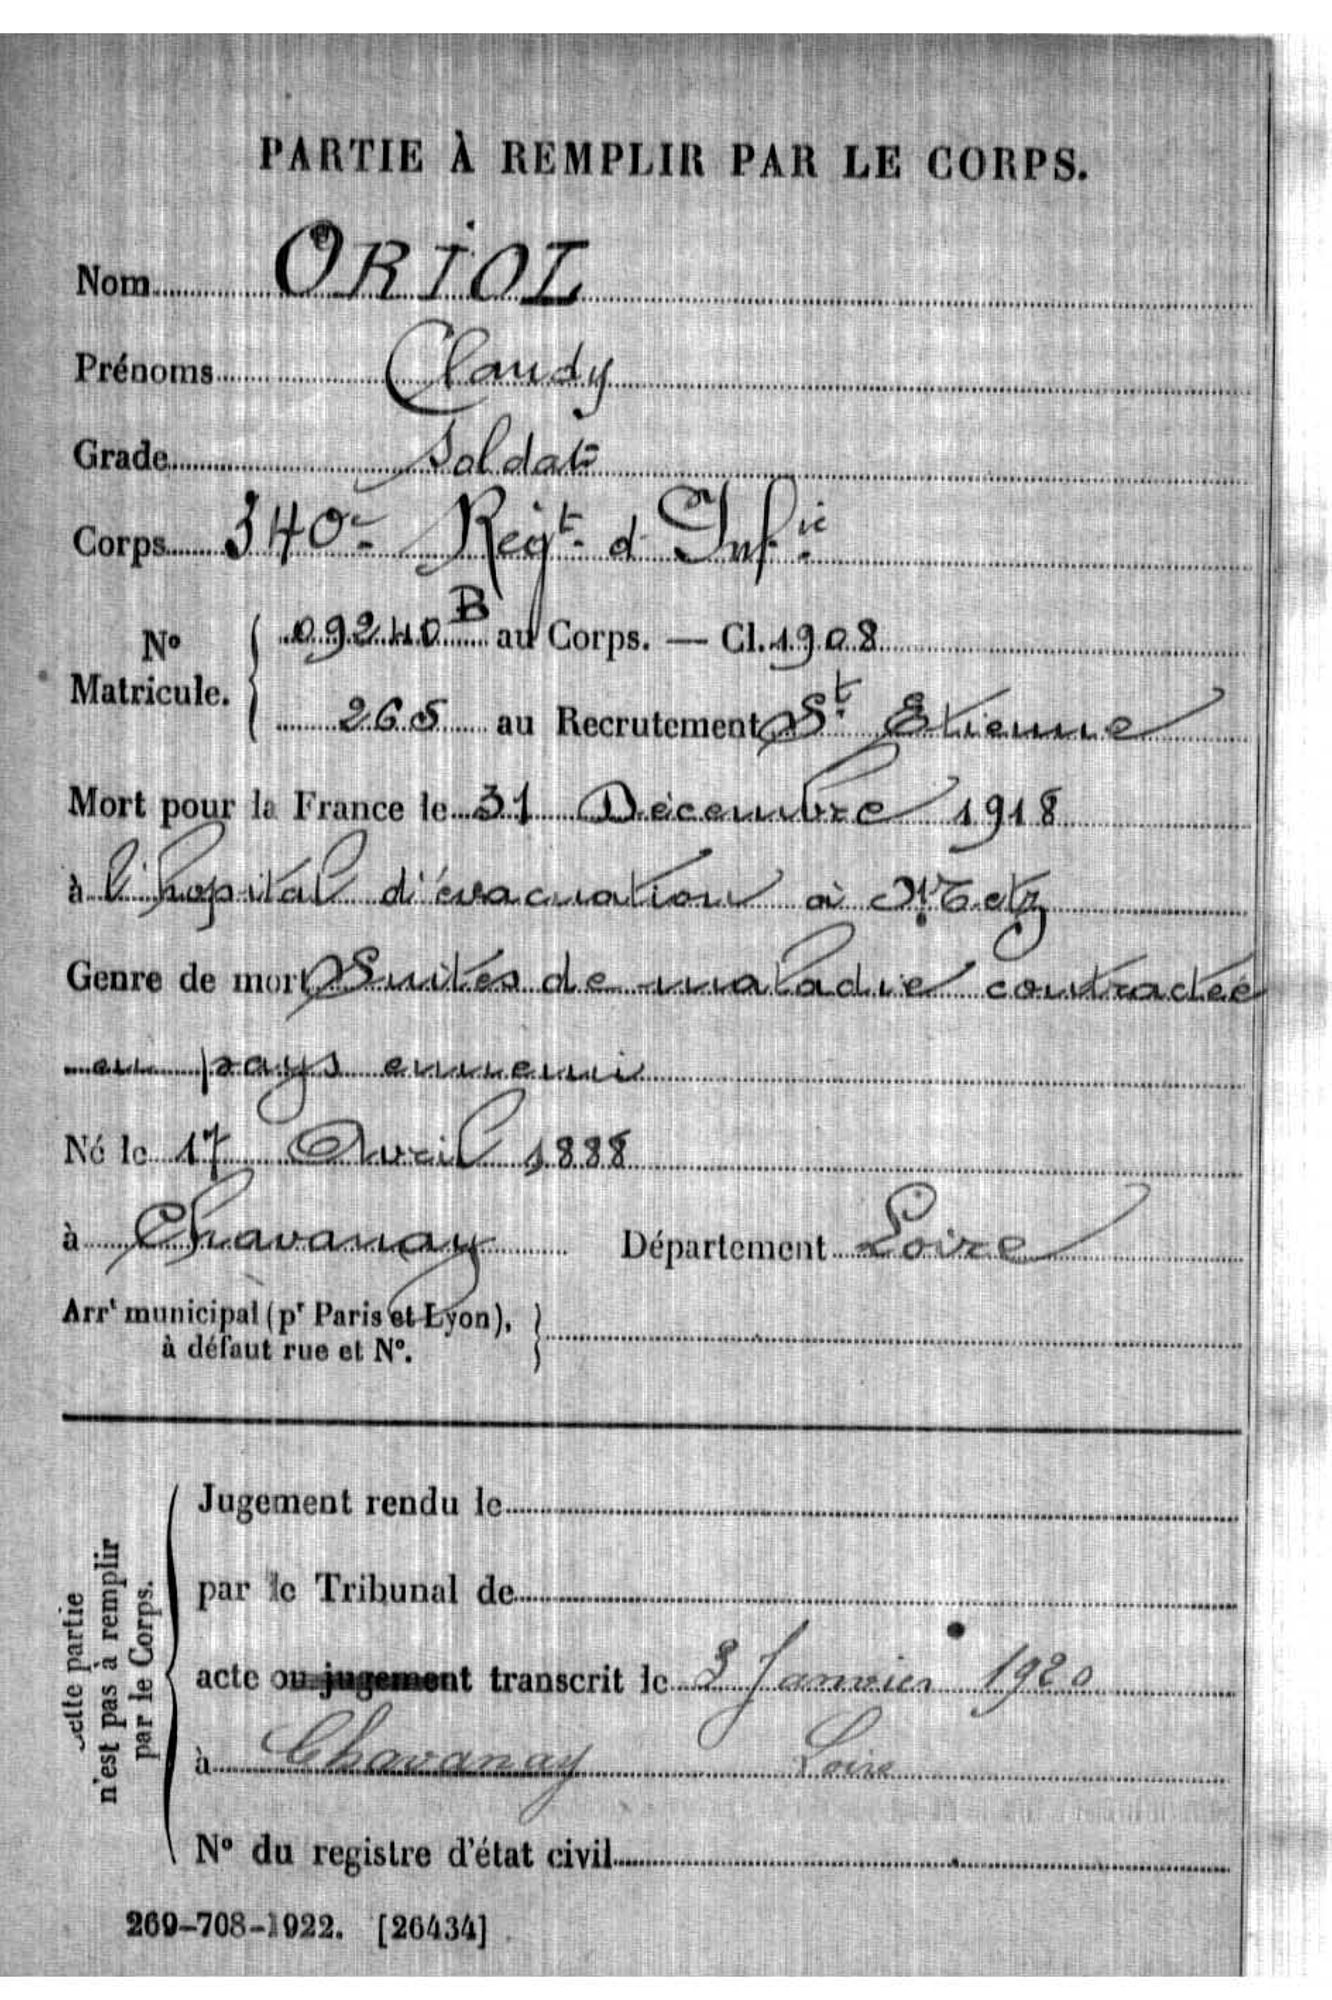 PARTIE À REMPLIR PAR LE CORPS.
Nom ORIOL
Prénoms Claudy
Grade Soldat
Corps 340e Régt d'Infie
No Matricule. 09240 B au Corps. — Cl. 1908
265 au Recrutement St Etienne
Mort pour la France le 31 Décembre 1918
à l'hopital d'évacuation à Metz
Genre de mort Suites de maladie contractée
en pays ennemi
Né le 17 Avril 1888
à Chavanay Département Loire
Arrt municipal (pr Paris et Lyon),
à défaut rue et No.
Cette partie
n'est pas à remplir
par le Corps.
Jugement rendu le
par le Tribunal de
acte ou jugement transcrit le 3 Janvier 1920
à Chavanay Loire
No du registre d'état civil
269-708-1922. [26434]